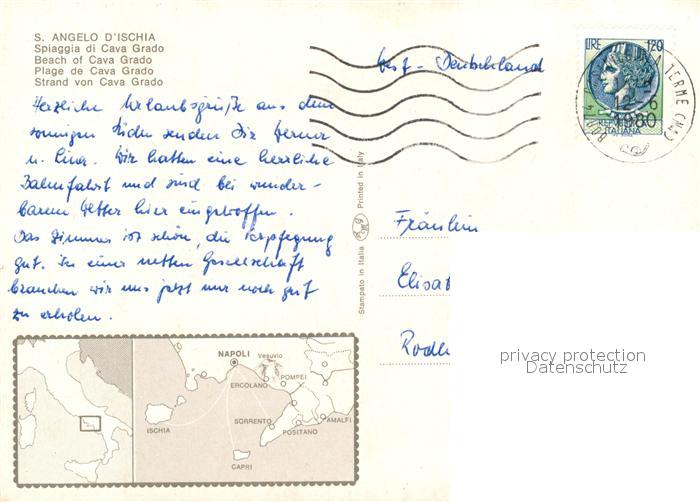 S. ANGELO D'ISCHIA
Spiaggia di Cava Grado
Beach of Cava Grado
Plage de Cava Grado
Strand von Cava Grado
Herzliche Urlaubsgrüße aus dem
sonnigen Süden senden Dir Werner
u. Lina. Wir hatten eine herrliche
Bahnfahrt und sind bei wunder-
barem Wetter hier eingetroffen.
Das Zimmer ist schön, die Verpflegung
gut. In einer netten Gesellschaft
brauchen wir uns jetzt nur noch gut
zu erholen.
West-Deutschland
LIRE 120
REPUBBLICA
ITALIANA
TERME (NA)
12-6
1980
Stampato in Italia
Printed in Italy
Fräulein
Elisa
Rode
privacy protection
Datenschutz
NAPOLI
Vesuvio
ERCOLANO
POMPEI
ISCHIA
SORRENTO
POSITANO
AMALFI
CAPRI